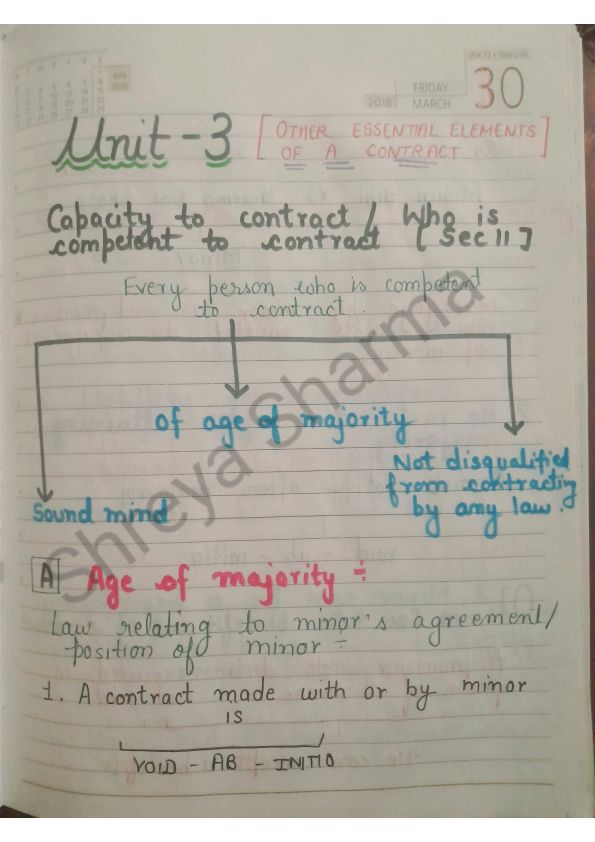 FRIDAY
2018 MARCH
30
Unit-3 [OTHER ESSENTIAL ELEMENTS
OF A CONTRACT]
Capacity to contract / Who is
competent to contract [Sec 11]
Every person who is competent
to contract.
of age of majority
Not disqualified
from contracting
by any law.
Sound mind
Shreya Sharma
A Age of majority ÷
Law relating to minor's agreement/
position of minor ÷
1. A contract made with or by minor
IS
VOID - AB - INITIO